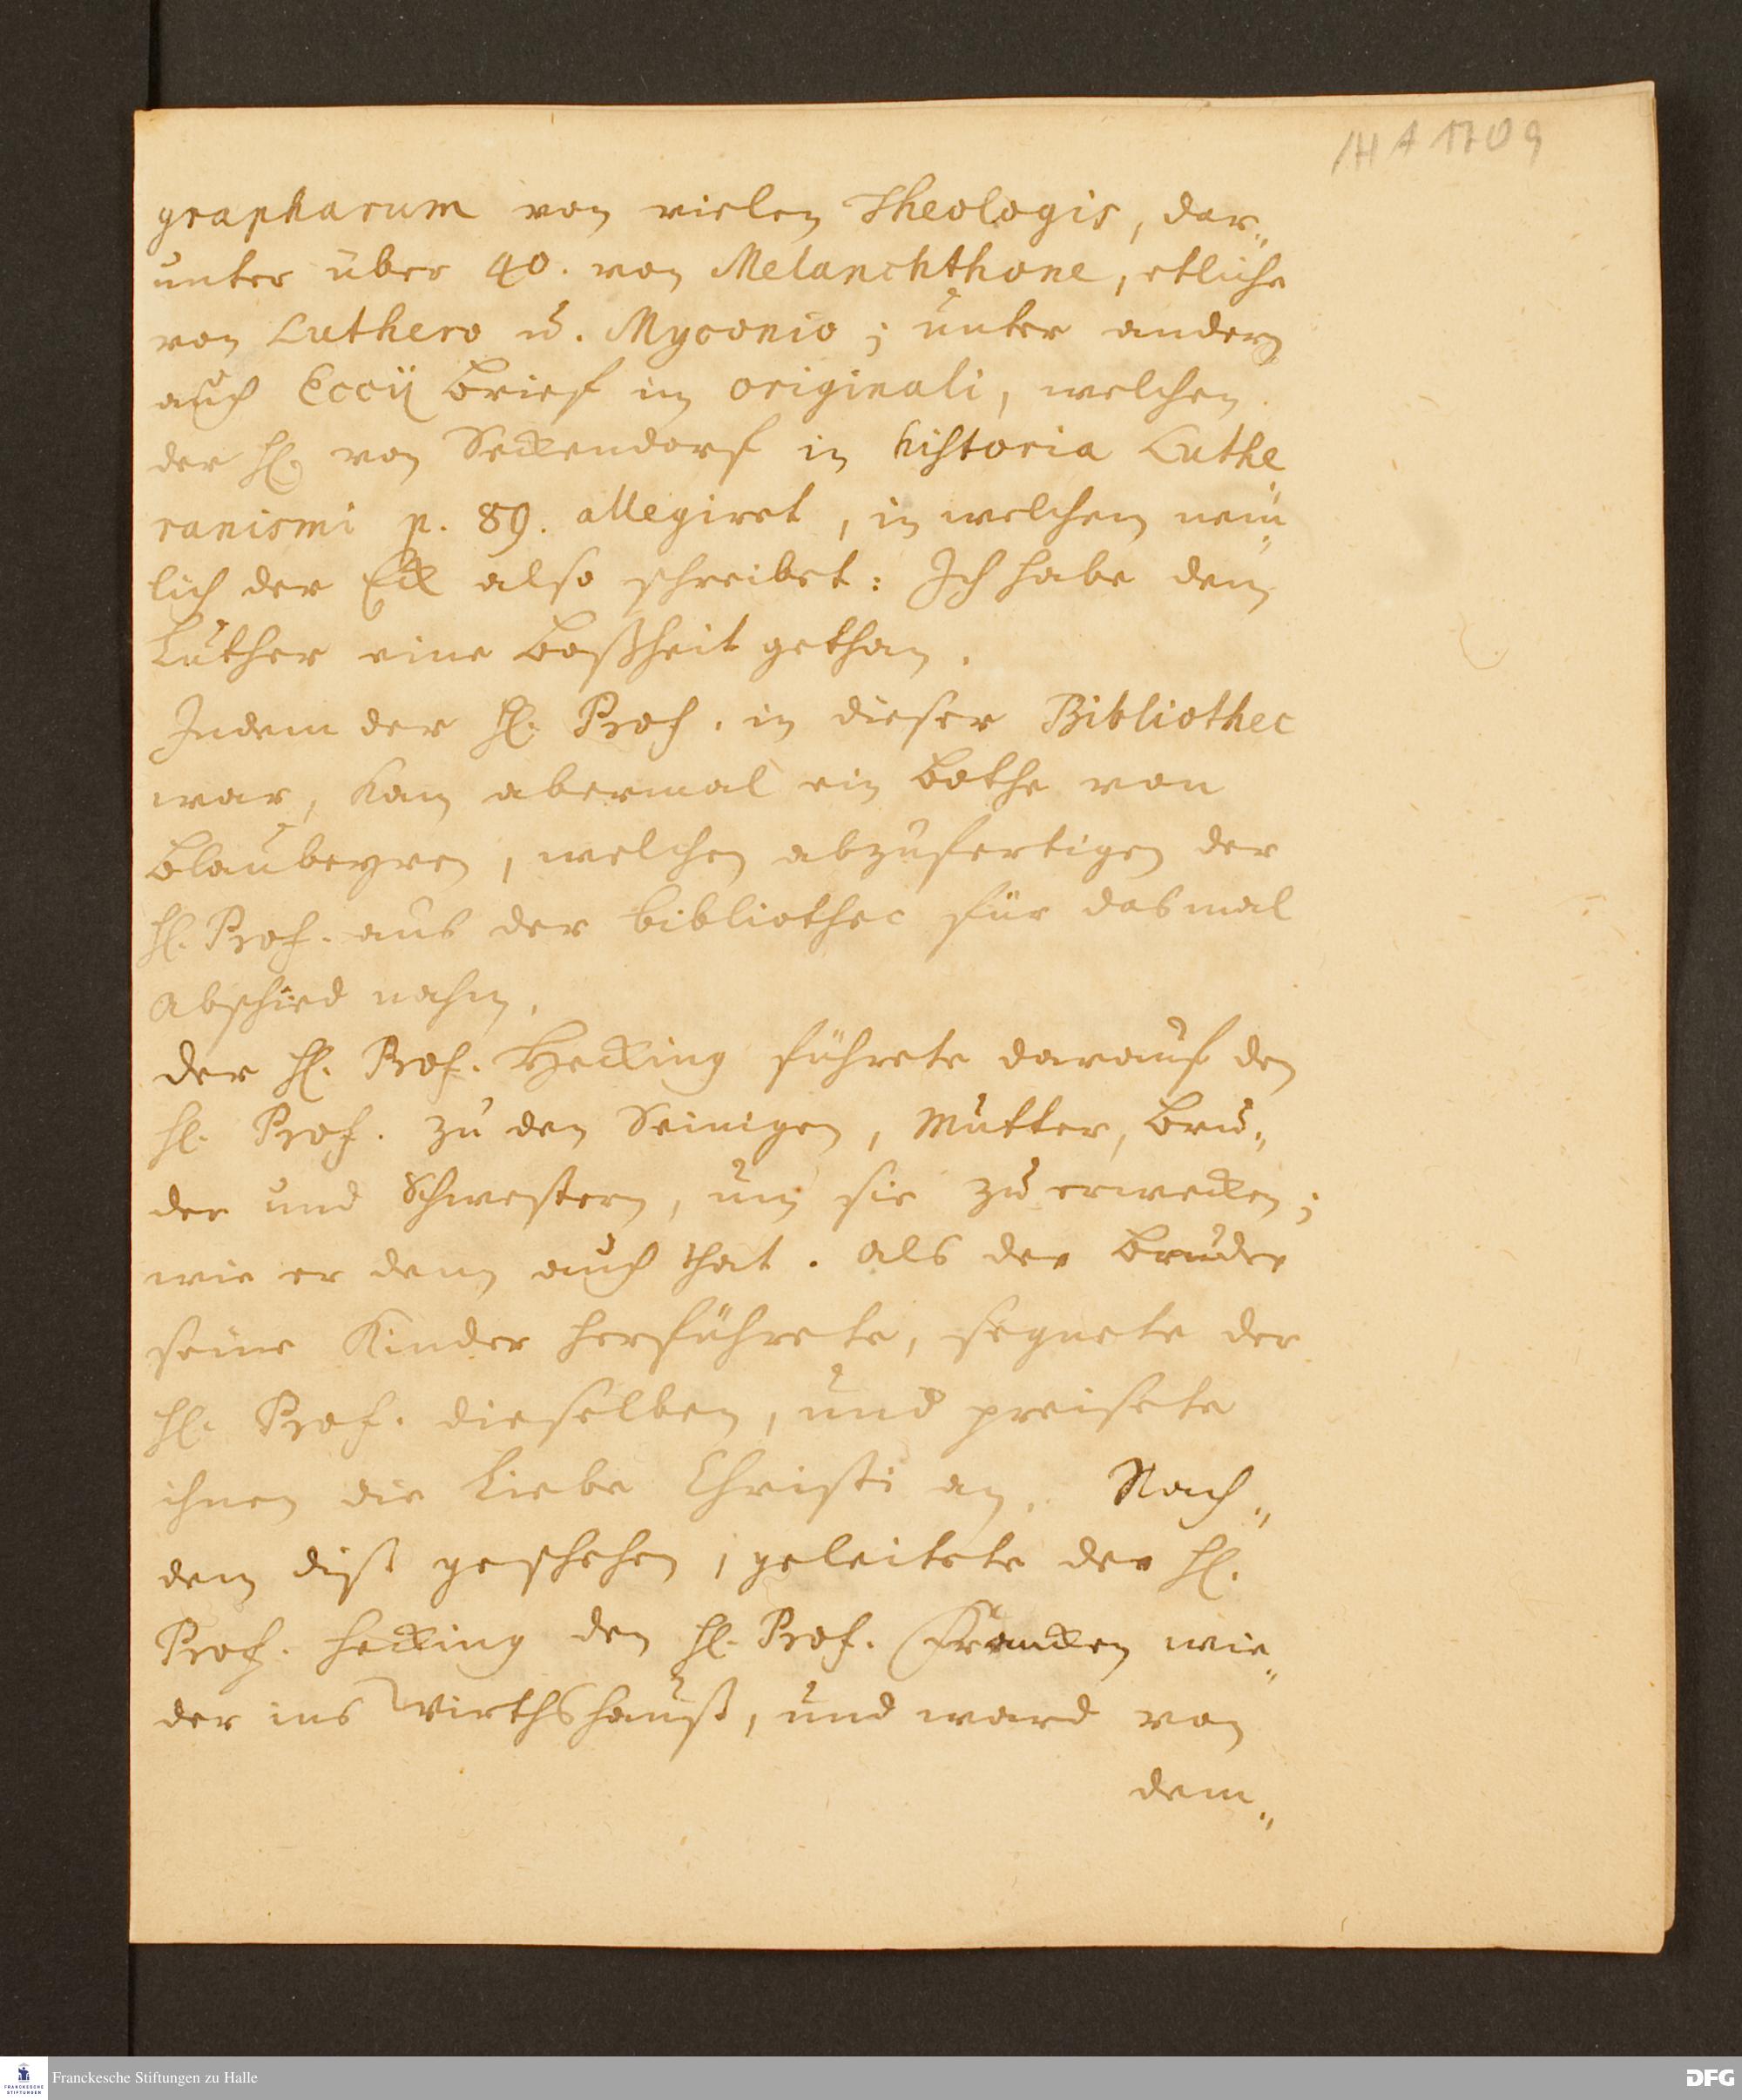 /H A 170 9
grapharum von vielen Theologis, dar„
unter über 40. von Melanchthone, etliche
von Luthero u. Myconio; unter andern
auch Eccij Brief in originali, welchen
der H. von Seckendorf in historia Luthe„
ranismi p. 89. allegiret, in welchem nem„
lich der Eck also schreibet: Ich habe dem
Luther eine Boßheit gethan.
Indem der H. Prof. in dieser Bibliothec
war, kam abermal ein Bothe von
Blaubeyren, welchen abzufertigen der
H. Prof. aus der bibliothec für dasmal
Abschied nahm.
Der H. Prof. Hecking führete darauf den
H. Prof. zu den Seinigen, Mutter, Bru„
der und Schwestern, um sie zu erwecken;
wie er denn auch that. Als der Bruder
seine Kinder herführete, segnete der
H. Prof. dieselben, und preisete
ihnen die Liebe Christi an. Nach„
dem diß geschehen, geleitete der H.
Prof. Hecking den H. Prof. Francken wie„
der ins Wirthshauß, und ward von
dem„
Franckesche Stiftungen zu Halle
FRANCKESCHE
STIFTUNGEN
DFG